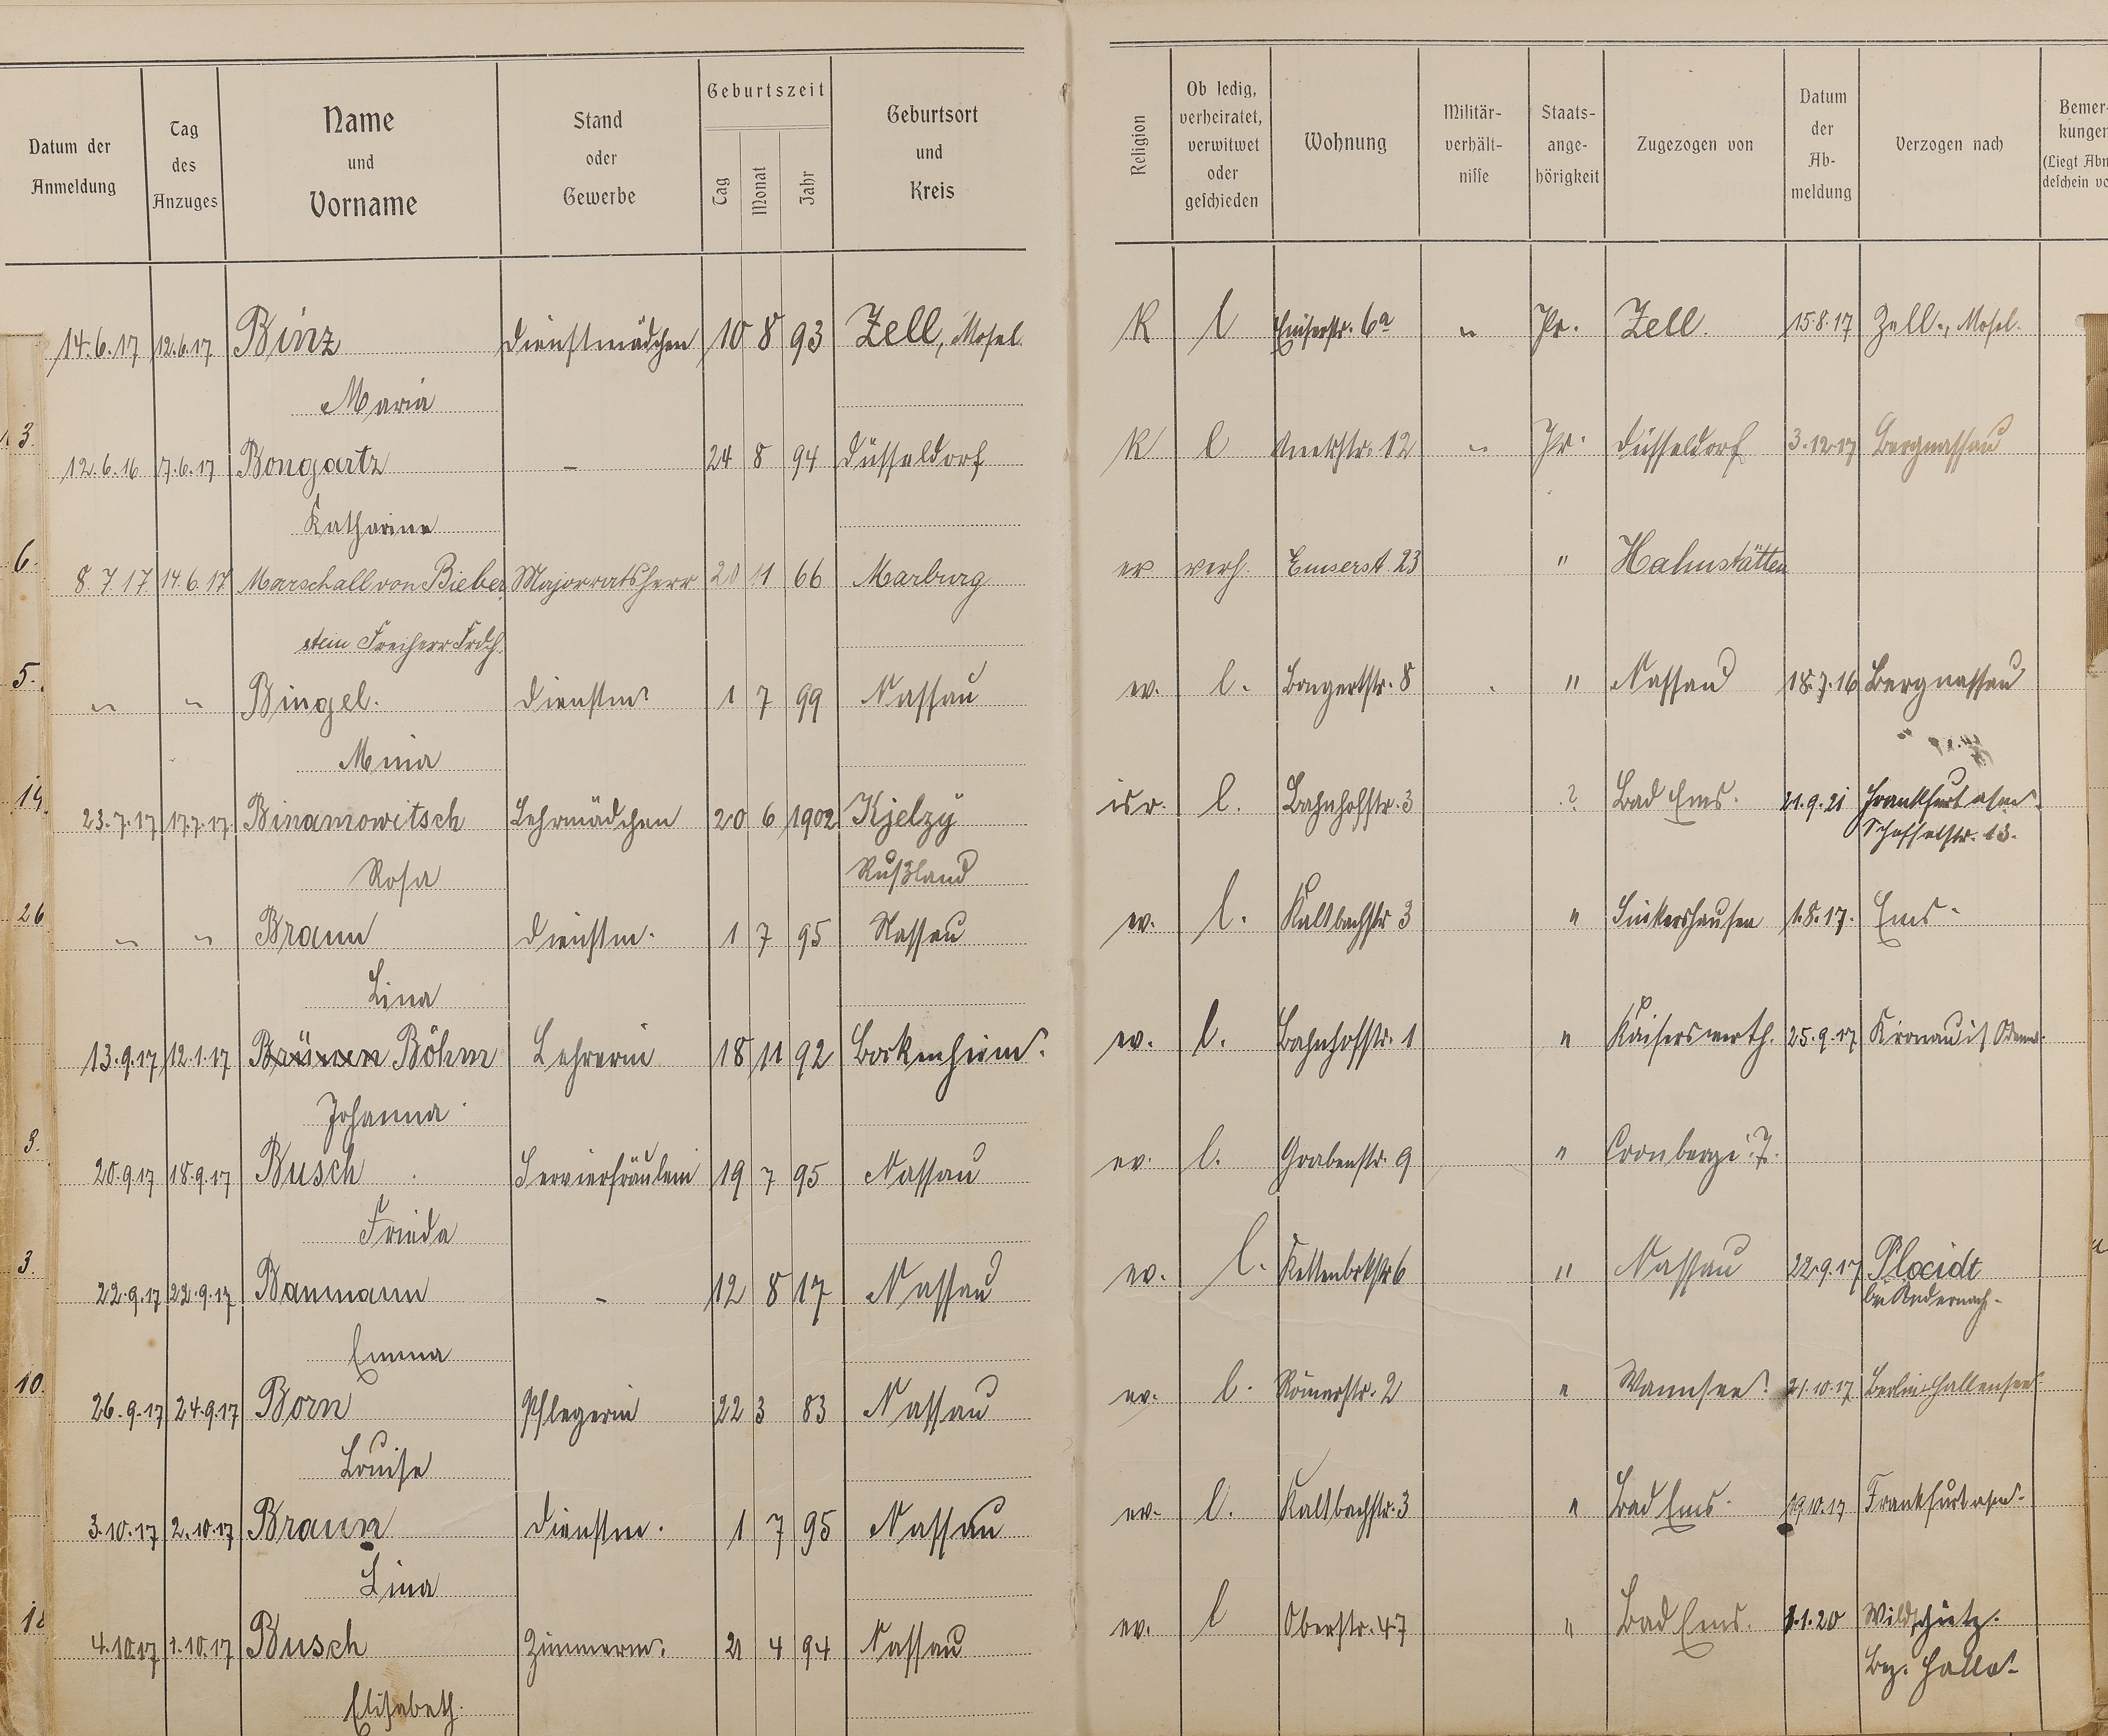 Datum der Anmeldung Tag des Anzuges Name und Vorname Stand oder Gewerbe Geburtszeit Tag Monat Jahr Geburtsort und Kreis Religion Ob ledig, verheiratet, verwitwet oder geschieden Wohnung Militär-verhält-nisse Staats-ange-hörigkeit Zugezogen von Datum der Ab-meldung Verzogen nach Bemer-kungen (Liegt Abm
14.6.17 12.6.17 Binz Dienstmädchen 10 8 93 Zell, Mosel K l Emserstr. 6a " Pr. Zell. 15.8.17 Zell., Mosel.
Maria
3.
12.6.16 7.6.17 Bongartz - 24 8 94 Düsseldorf K l 12 " Pr. Düsseldorf 3.12.17 Bergnassau
Katharina
6.
8.7.17 14.6.17 Marschall von Bieber Majorratsherr 20 11 66 Marburg ev verh. Emserst. 23 " Hahnstätten
stein Freiherr Frdch.
5.
" " Bingel. Dienstm. 1 7 99 Nassau ev. l. Bongertstr. 8 " Nassau 18.7.16 Bergnassau
Mina
14.
23.7.17 17.7.17 Binamowitsch Lehrmädchen 20 6 1902 Kjelzy isr. l. Bahnhofstr. 3 ? Bad Ems. 21.9.21 Frankfurt a/m.
Scheffelstr. 13.
Rosa Rußland
26
" " Braun Dienstm. 1 7 95 Nassau ev. l. Kaltbachstr 3 " 1.8.17. Ems.
Lina
13.9.17 12.1.17 Brünen Böhm Lehrerin 18 11 92 Bockenheim. ev. l. Bahnhofstr. 1 " Kaiserswerth. 25.9.17 Odenw.
Johanna
3.
20.9.17 18.9.17 Busch Servierfräulein 19 7 95 Nassau ev. l. Grabenstr. 9 " Cronberg i. T.
Frieda
3.
22.9.17 22.9.17 Baumann - 12 8 17 Nassau ev. l. 6 " Nassau 22.9.17 Plocidt
bei Andernach.
Emma
10.
26.9.17 24.9.17 Born Pflegerin 22 3 83 Nassau ev. l. Römerstr. 2 " Wannsee. 21.10.17 Berlin-Hallensee
Louise
3.10.17 2.10.17 Braun Dienstm. 1 7 95 Nassau ev. l. Kaltbachstr. 3 " Bad Ems. 19.10.17 Frankfurt a/m.
Lina
4.10.17 1.10.17 Busch Zimmerm. 21 4 94 Nassau ev. l Oberstr. 47 " Bad Ems. 1.1.20 Wildschütz.
Bez. Halle.
Elisabeth.